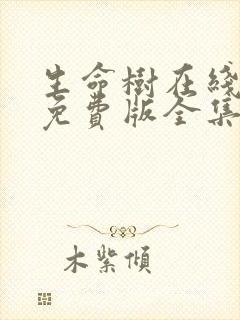 生命樹在綫
免費版全集
木紫傾